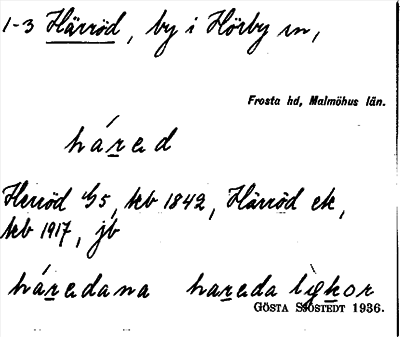 1-3 Härröd, by i Hörby sn,
Frosta hd, Malmöhus län.
hárad
Herröd 4/5, kb 1842, Härröd ek,
kb 1917, jb
háradana harada lyckor
GÖSTA SJÖSTEDT 1936.